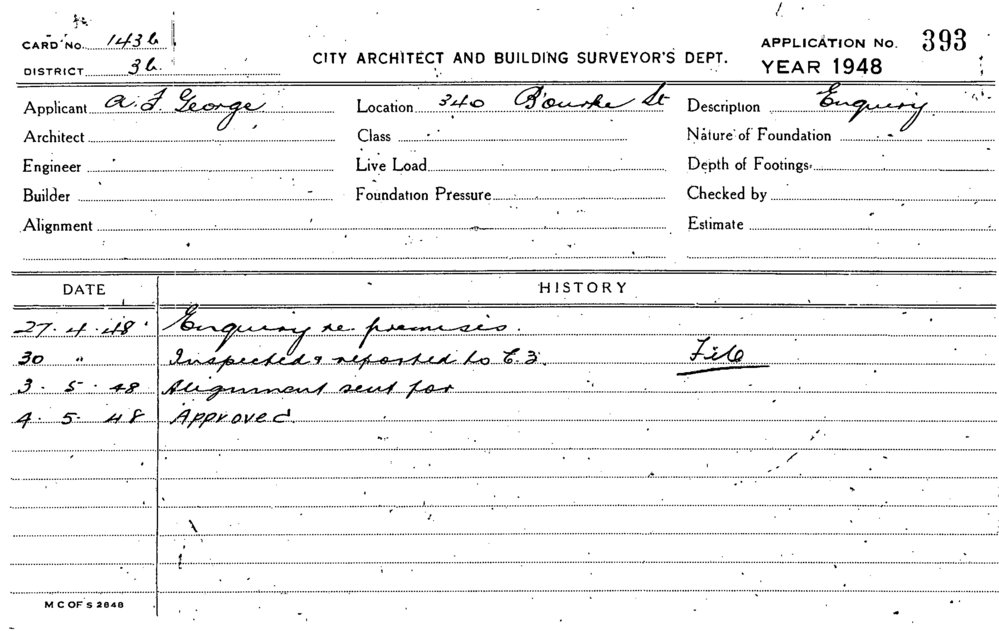 CARD No. 1436
DISTRICT 36
CITY ARCHITECT AND BUILDING SURVEYOR'S DEPT.
APPLICATION No. 393
YEAR 1948
Applicant A. J. George Location 340 Bourke St Description Enquiry
Architect Class Nature of Foundation
Engineer Live Load Depth of Footings
Builder Foundation Pressure Checked by
Alignment Estimate
DATE HISTORY
27. 4. 48 Enquiry re. premises.
30 " Inspected & reported to File
3. 5. 48 Alignment sent for
4. 5. 48 Approved.
M C OF S 2848